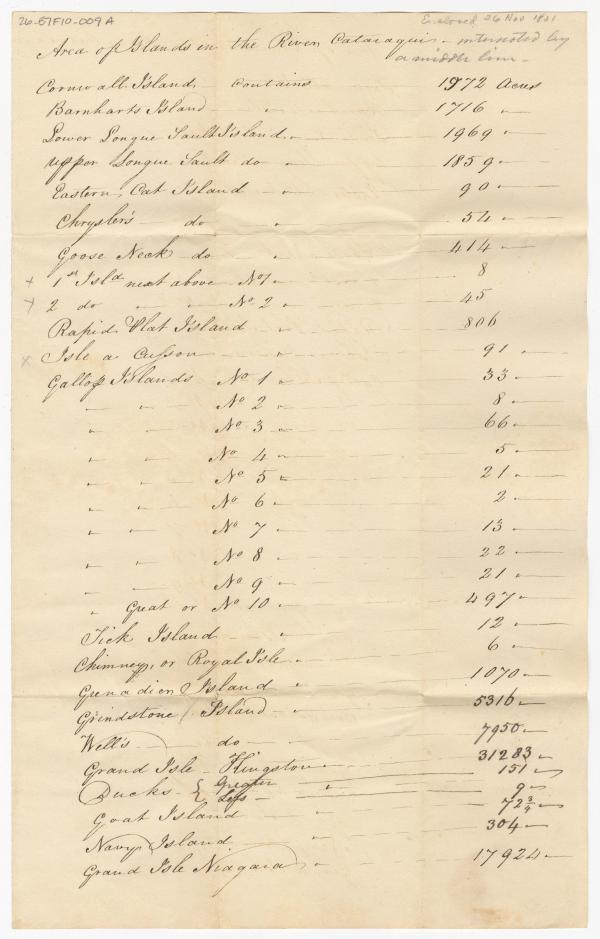 26-E7F10-009A
Enclosed 26 Nov 1821
Area of Islands in the River Cataraquis - intersected by
a middle line -
Cornwall Island contains 1972 Acres
Barnharts Island " 1716 "
Lower Longue Sault Island " 1969 "
upper Longue Sault do " 1859 "
Eastern, Cat Island " 90 "
Chrysler's do " 54 "
Goose Neck do " 414 "
+ 1st Isld next above No 1 " 8
+ 2 do " " No. 2 " 45
Rapid Plat Island " 806
x Isle a Cusson " 91 "
Gallop Islands No 1 " 33 "
" " No 2 " 8 "
" " No 3 " 66 "
" " No 4 " 5 "
" " No 5 " 21 "
" " No 6 " 2 "
" " No 7 13 "
" " No 8 " 22 "
" " No 9 " 21 "
" Great or No 10 " 497 "
Tick Island " 12 "
Chimney, or Royal Isle " 6 "
Grenadier Island " 1070 "
Grindstone Island " 5316 "
Well's do " 7950 "
Grand Isle - Kingston " 31283 "
Ducks { Greater 151 "
Less 9 "
Goat Island " 72 3/4 "
Navy Island " 304 "
Grand Isle Niagara " 17924 "